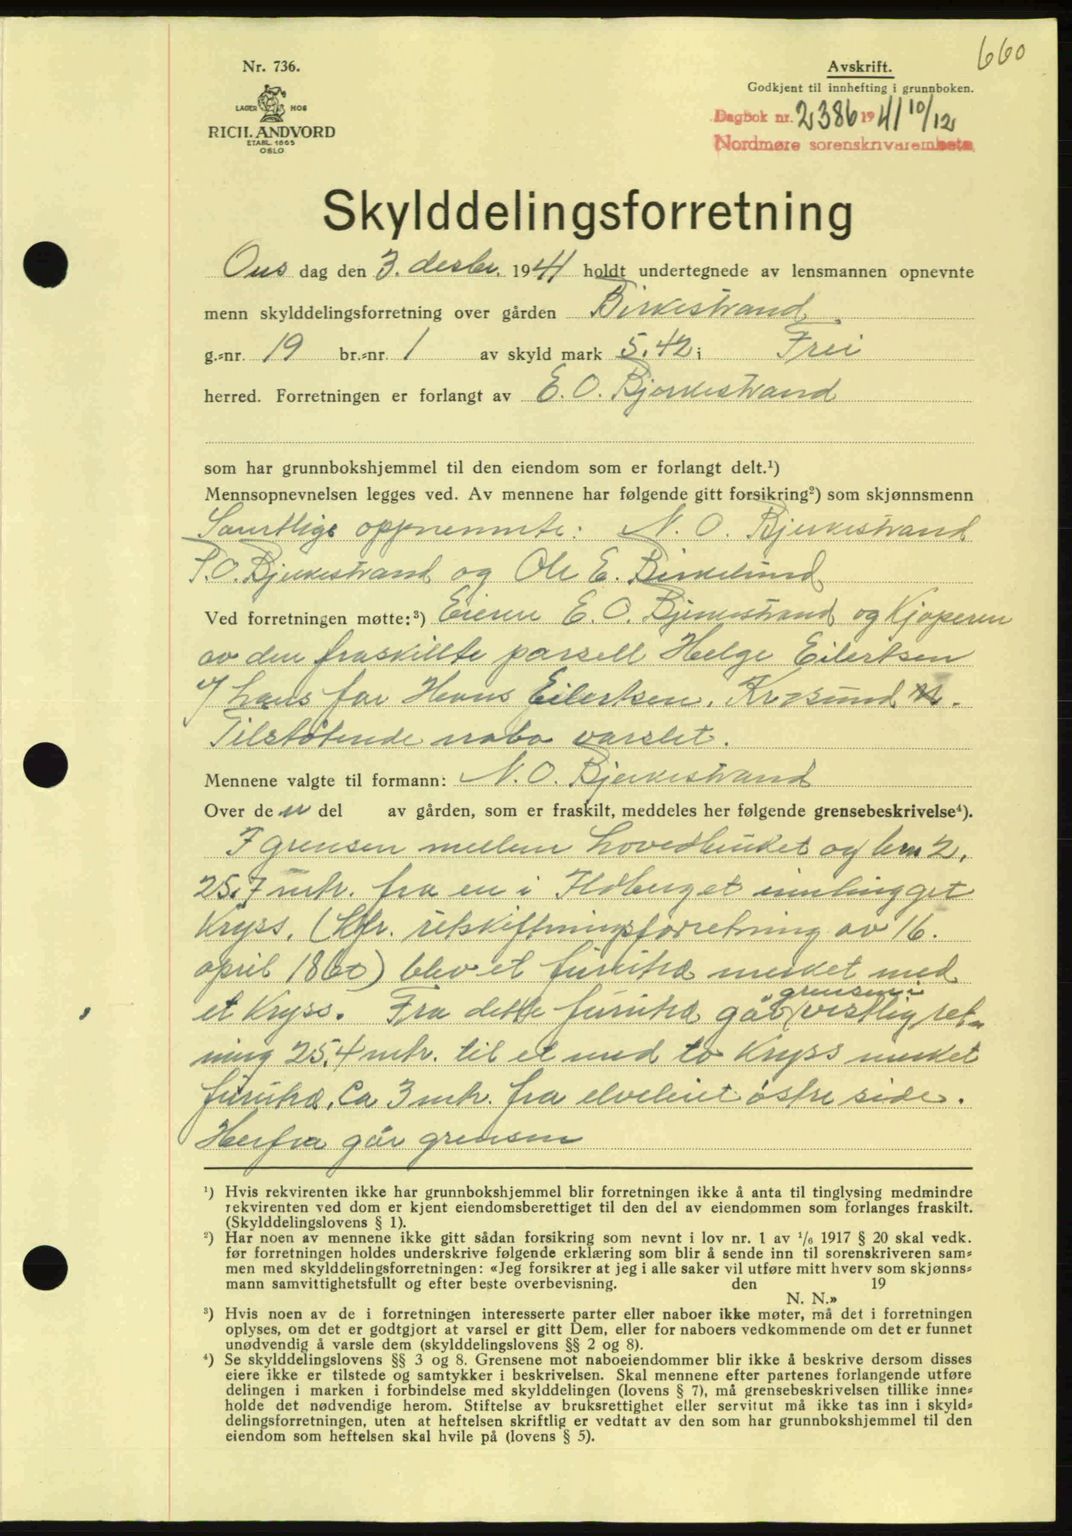 660
Nr. 736.
LAGER HOS
RICH. ANDVORD
ETABL. 1865
OSLO
Avskrift.
Godkjent til innhefting i grunnboken.
Dagbok nr. 2386 1941 10/12
Nordmøre sorenskriverembete
Skylddelingsforretning
Ons dag den 3. desbr. 1941 holdt undertegnede av lensmannen opnevnte
menn skylddelingsforretning over gården Birkestrand
g.-nr. 19 br.-nr. 1 av skyld mark 5.42 i Frei
herred. Forretningen er forlangt av E. O. Bjerkestrand
som har grunnbokshjemmel til den eiendom som er forlangt delt.¹)
Mennsopnevnelsen legges ved. Av mennene har følgende gitt forsikring²) som skjønnsmenn
Samtlige oppnevnte: N. O. Bjerkestrand
P. O. Bjerkestrand og Ole E. Birkelund
Ved forretningen møtte:³) Eieren E. O. Bjerkestrand og Kjøperen
av den fraskillte parsell Helge Eilertsen
v/ hans far Hans Eilertsen, Kr.sund N.
Tilstøtende nabo varslet.
Mennene valgte til formann: N. O. Bjerkestrand
Over de n del av gården, som er fraskilt, meddeles her følgende grensebeskrivelse⁴).
I grensen mellem hovedbruket og brn 2,
25.7 mtr. fra en i Flåberget innhugget
Kryss, (Kfr. utskiftningsforretning av 16.
april 1860) blev et furutre merket med
et Kryss. Fra dette furutre går grensen i vestlig ret-
ning 25.4 mtr. til et med to Kryss merket
furutre, Ca 3 mtr. fra elveleiet østre side.
Herfra går grensen
¹) Hvis rekvirenten ikke har grunnbokshjemmel blir forretningen ikke å anta til tinglysing medmindre
rekvirenten ved dom er kjent eiendomsberettiget til den del av eiendommen som forlanges fraskilt.
(Skylddelingslovens § 1).
²) Har noen av mennene ikke gitt sådan forsikring som nevnt i lov nr. 1 av 1/6 1917 § 20 skal vedk.
før forretningen holdes underskrive følgende erklæring som blir å sende inn til sorenskriveren sam-
men med skylddelingsforretningen: «Jeg forsikrer at jeg i alle saker vil utføre mitt hverv som skjønns-
mann samvittighetsfullt og efter beste overbevisning. den 19
N. N.»
³) Hvis noen av de i forretningen interesserte parter eller naboer ikke møter, må det i forretningen
oplyses, om det er godtgjort at varsel er gitt Dem, eller for naboers vedkommende om det er funnet
unødvendig å varsle dem (skylddelingslovens §§ 2 og 8).
⁴) Se skylddelingslovens §§ 3 og 8. Grensene mot naboeiendommer blir ikke å beskrive dersom disses
eiere ikke er tilstede og samtykker i beskrivelsen. Skal mennene efter partenes forlangende utføre
delingen i marken i forbindelse med skylddelingen (lovens § 7), må grensebeskrivelsen tillike inne-
holde det nødvendige herom. Stiftelse av bruksrettighet eller servitut må ikke tas inn i skyld-
delingsforretningen, uten at heftelsen skriftlig er vedtatt av den som har grunnbokshjemmel til den
eiendom som heftelsen skal hvile på (lovens § 5).